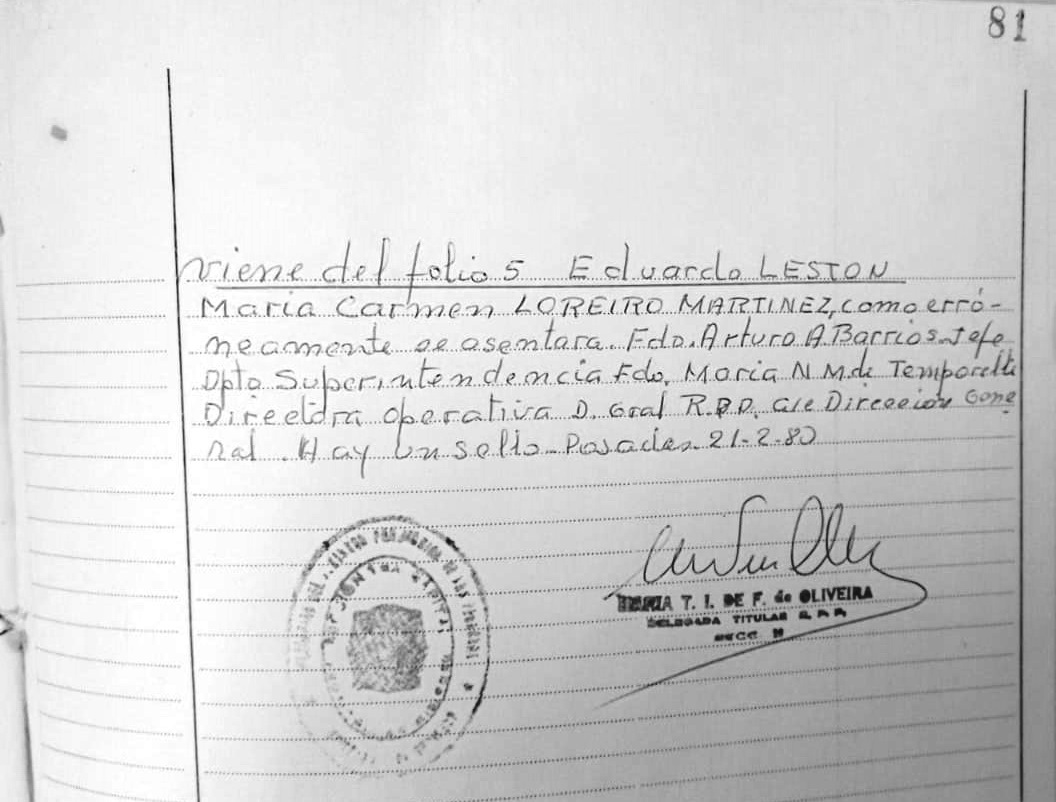 81
viene del folio 5 Eduardo LESTON
Maria Carmen LOREIRO MARTINEZ, como erró-
neamente se asentara. Fdo. Arturo A. Barrios. Jefe
Dpto Superintendencia Fdo. Maria N M. de Temporelli
Directora Operativa D. Gral R.P.P. a/c Direccion Gene
ral. Hay un sello. Posadas. 21-2-80
MARIA T. I. DE F. de OLIVEIRA
DELEGADA TITULAR R. P. P.